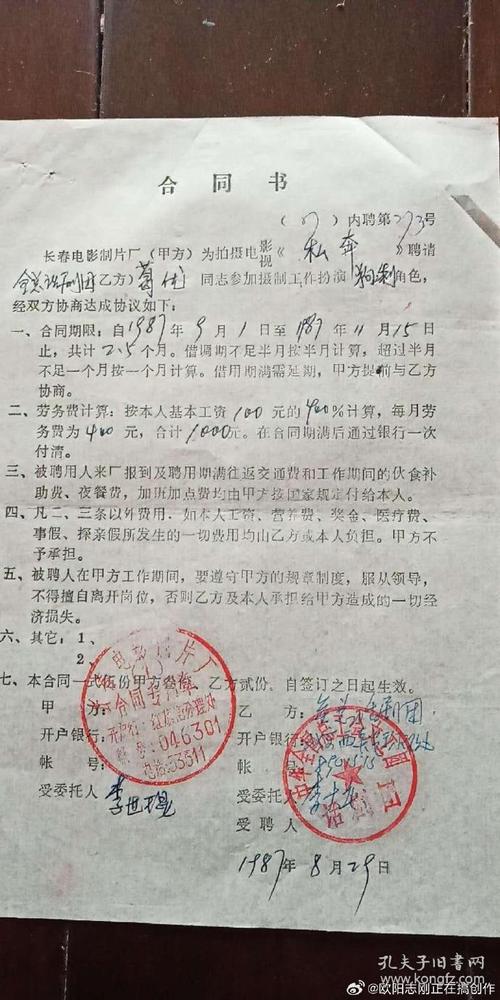 合同书
(87)内聘第273号
长春电影制片厂(甲方)为拍摄电影视《私奔》聘请
全总话剧团乙方)葛优同志参加摄制工作扮演 角色,
经双方协商达成协议如下:
一、合同期限:自1987年9月1日至1987年11月15日
止,共计2.5个月。借调期不足半月按半月计算,超过半月
不足一个月按一个月计算。借用期满需延期,甲方提前与乙方
协商。
二、劳务费计算:按本人基本工资100元的400%计算,每月劳
务费为400元,合计1000元。在合同期满后通过银行一次
付清。
三、被聘用人来厂报到及聘用期满往返交通费和工作期间的伙食补
助费、夜餐费,加班加点费均由甲方按国家规定付给本人。
四、凡二、三条以外费用.如本人工资、营养费、奖金、医疗费、
事假、探亲假所发生的一切费用均由乙方或本人负担。甲方不
予承担。
五、被聘人在甲方工作期间,要遵守甲方的规章制度,服从领导,
不得擅自离开岗位,否则乙方及本人承担给甲方造成的一切经
济损失。
六、其它:1、
2、
七、本合同一式伍份甲方叁份,乙方贰份,自签订之日起生效。
甲方:
乙方:全总话剧团
开户银行:
开户银行:
帐号:
帐号:
受委托人
受委托人
受聘人
1987年8月29日
电影制片厂
合同专用章
046301
电话53311
话剧团
孔夫子旧书网
@欧阳志刚正在搞创作